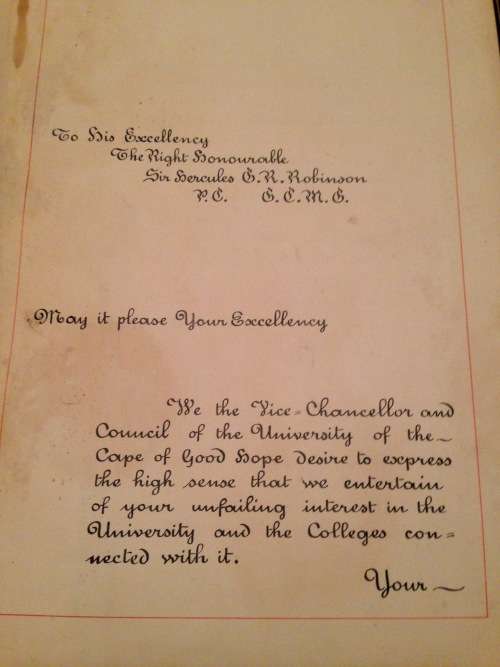 To His Excellency
The Right Honourable
Sir Hercules G. R. Robinson
P. C. G. C. M. G.
May it please Your Excellency
We the Vice=Chancellor and
Council of the University of the~
Cape of Good Hope desire to express
the high sense that we entertain
of your unfailing interest in the
University and the Colleges con=
nected with it.
Your~